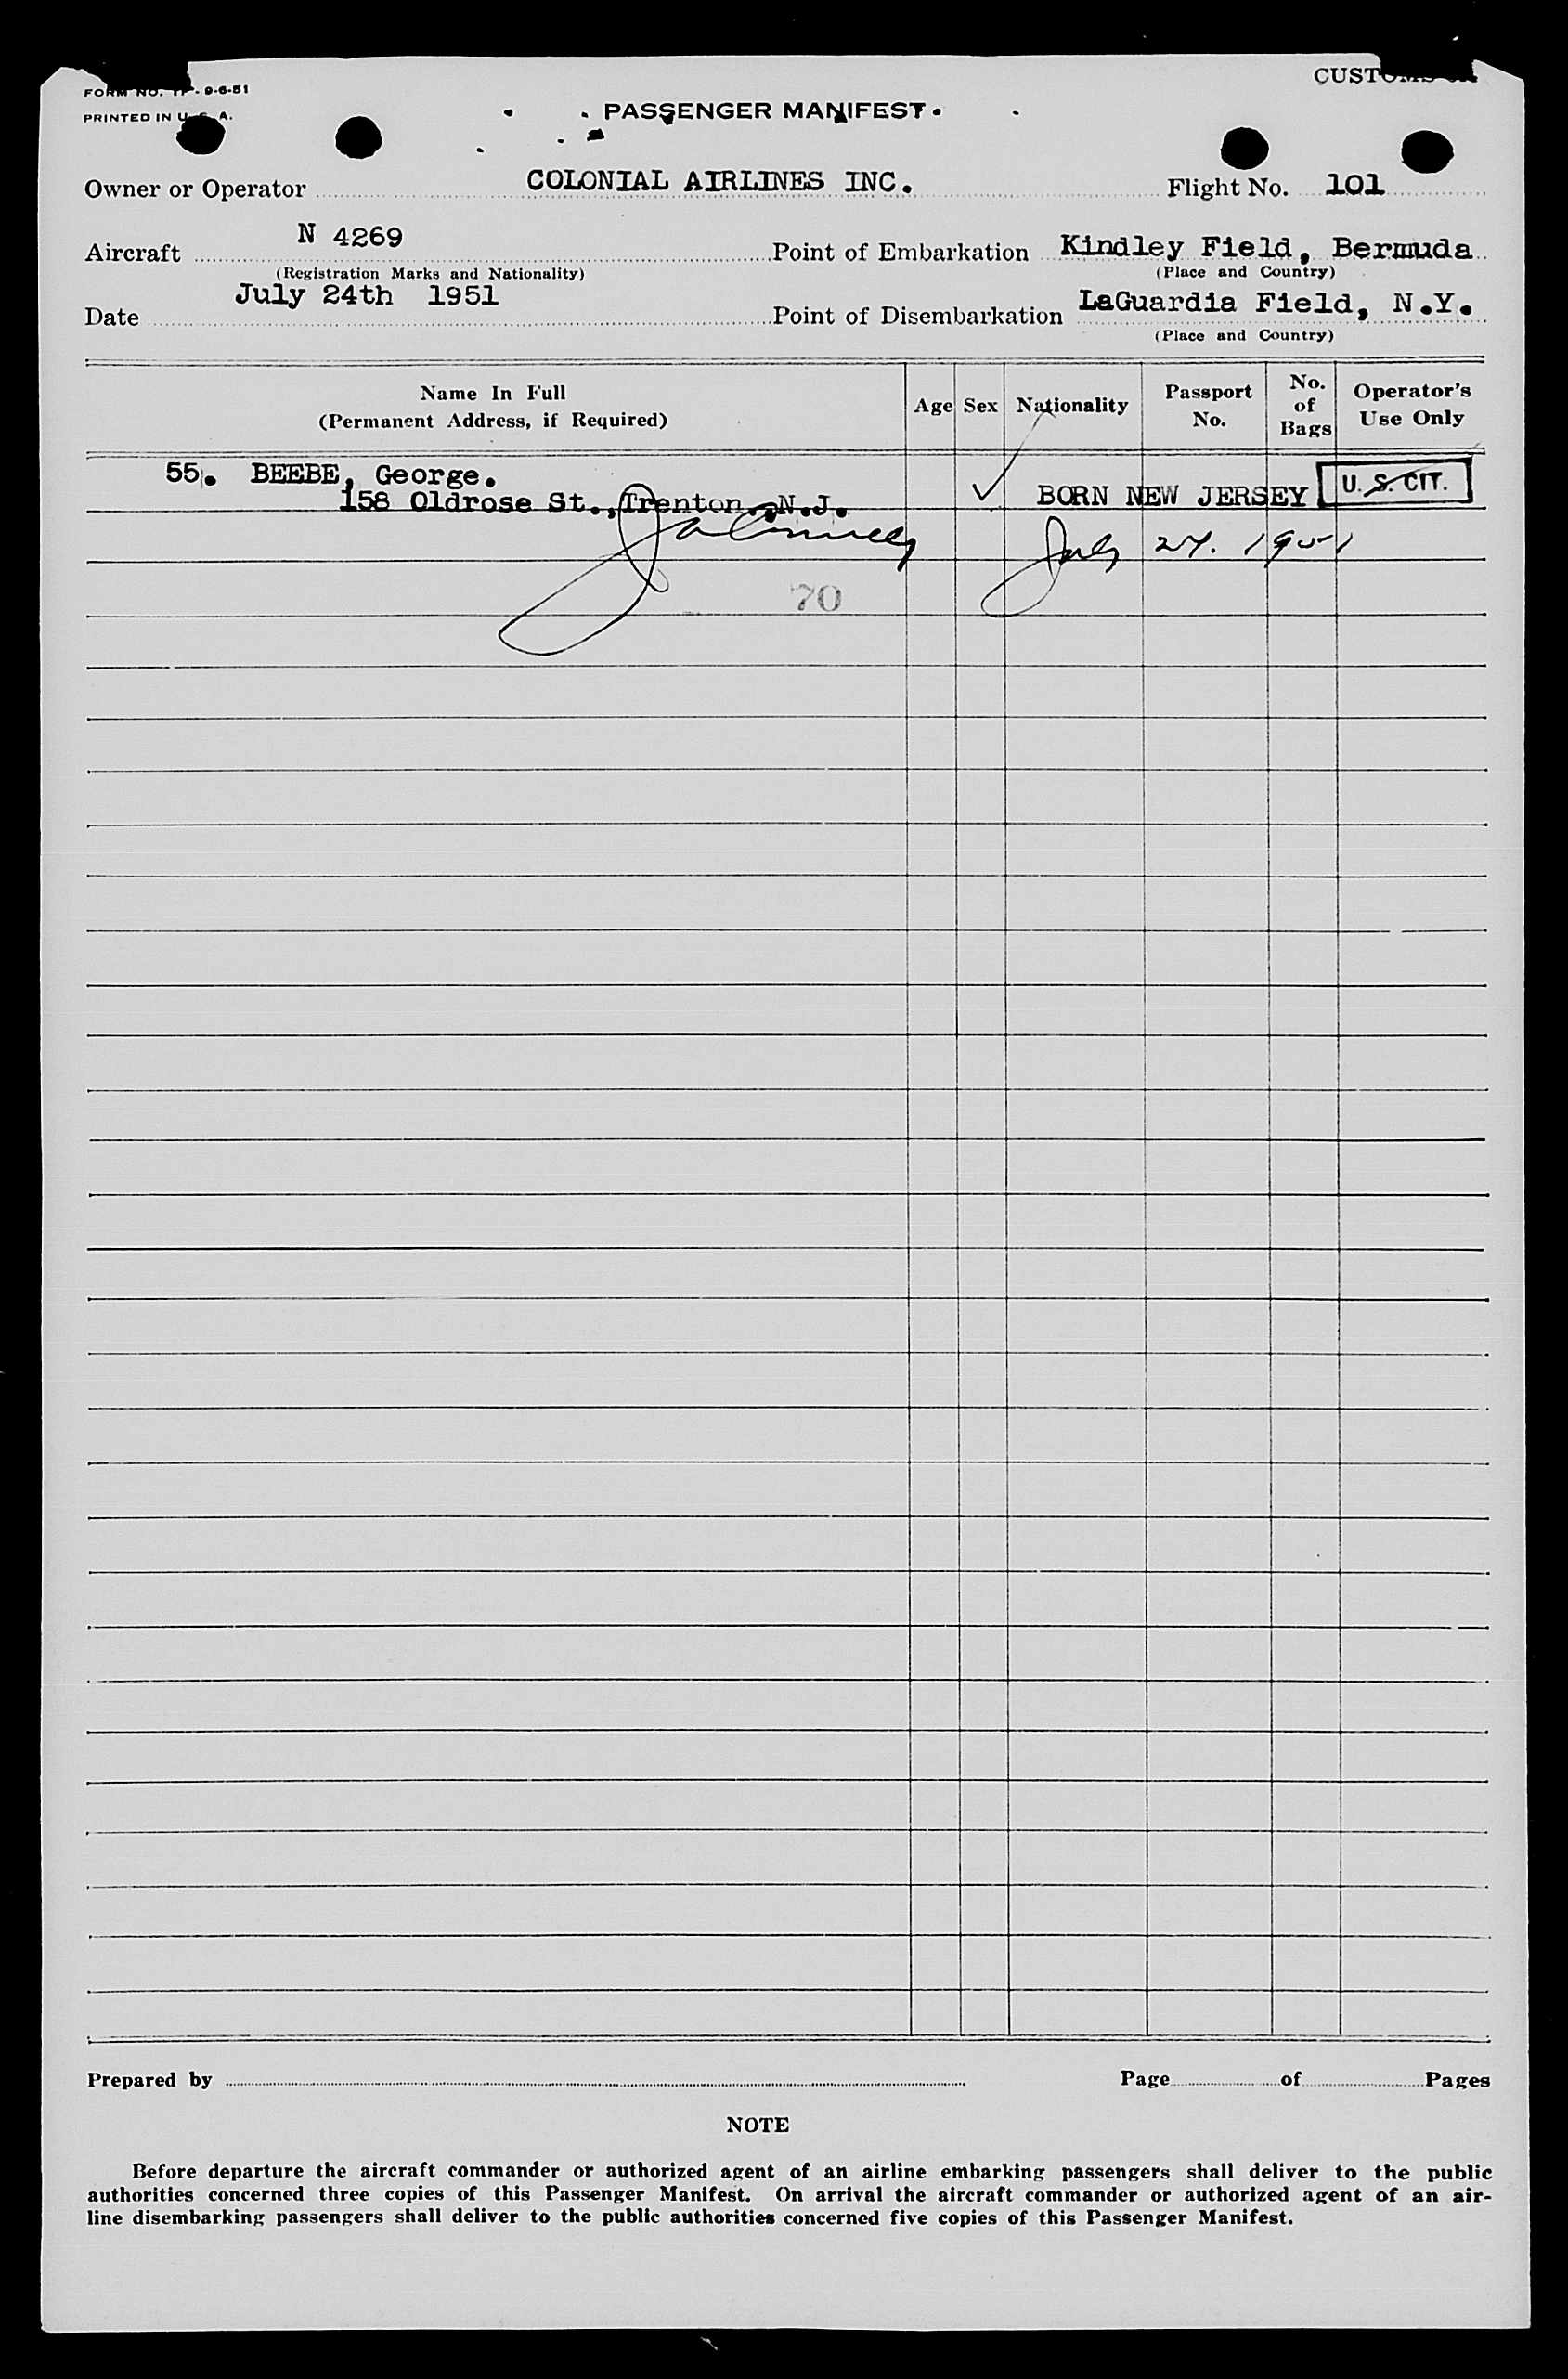 FORM NO. TP - 9-6-51
PRINTED IN U.S.A.
PASSENGER MANIFEST
Owner or Operator COLONIAL AIRLINES INC. Flight No. 101
Aircraft N 4269 Point of Embarkation Kindley Field, Bermuda
(Registration Marks and Nationality) (Place and Country)
Date July 24th 1951 Point of Disembarkation LaGuardia Field, N.Y.
(Place and Country)
Name In Full
(Permanent Address, if Required)
Age Sex Nationality
Passport
No.
No.
of
Bags
Operator's
Use Only
55. BEEBE, George.
158 Oldrose St., Trenton, N.J. BORN NEW JERSEY U. S. CIT.
July 24. 1951
70
Prepared by Page of Pages
NOTE
Before departure the aircraft commander or authorized agent of an airline embarking passengers shall deliver to the public
authorities concerned three copies of this Passenger Manifest. On arrival the aircraft commander or authorized agent of an air-
line disembarking passengers shall deliver to the public authorities concerned five copies of this Passenger Manifest.